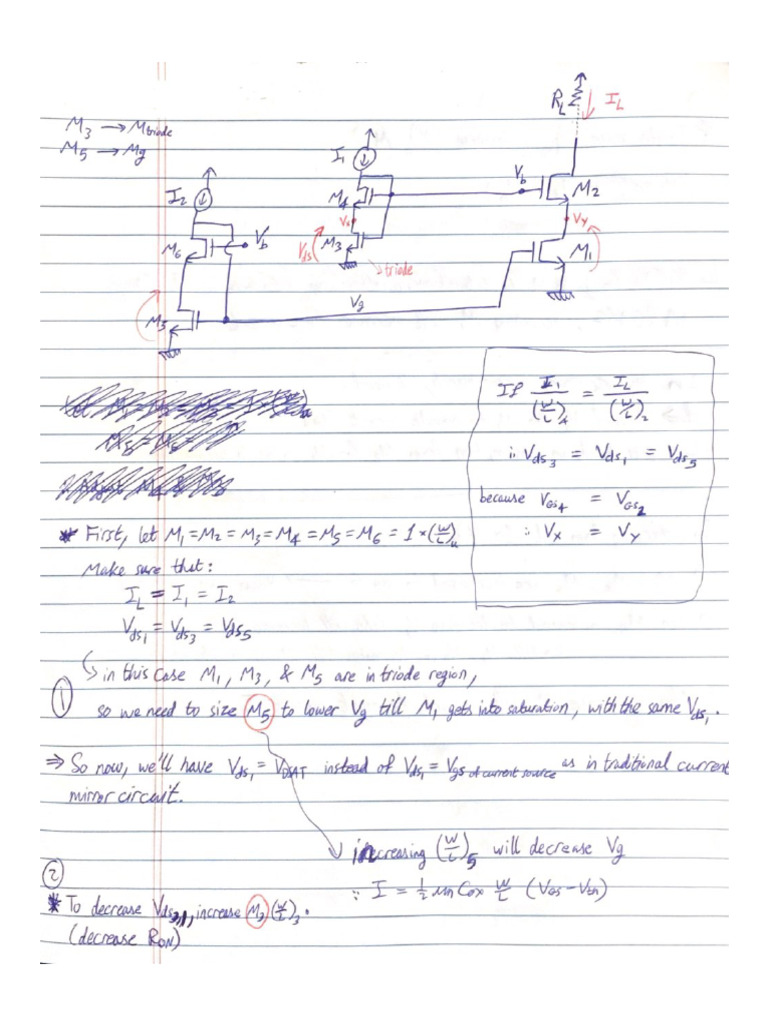 M3 → Mtriode
M5 → Mg
RL
IL
I1
I2
Vb
M4
M2
Vx
Vy
M6
Vb
Vds
M3
M1
triode
Vg
M5
If I1/(W/L)4 = IL/(W/L)2
∴ Vds3 = Vds1 = Vds5
because VGS4 = VGS2
∴ Vx = Vy
* First, let M1 = M2 = M3 = M4 = M5 = M6 = 1×(W/L)u
Make sure that:
IL = I1 = I2
Vds1 = Vds3 = Vds5
in this case M1, M3, & M5 are in triode region,
① so we need to size M5 to lower Vg till M1 gets into saturation, with the same Vds1.
⇒ So now, we'll have Vds1 = VDSAT instead of Vds1 = VGS of current source as in traditional current
mirror circuit.
increasing (W/L)5 will decrease Vg
∵ I = 1/2 µn Cox W/L (VGS - Vth)
②
* To decrease Vds3,1, increase M3 (W/L)3.
(decrease RON)